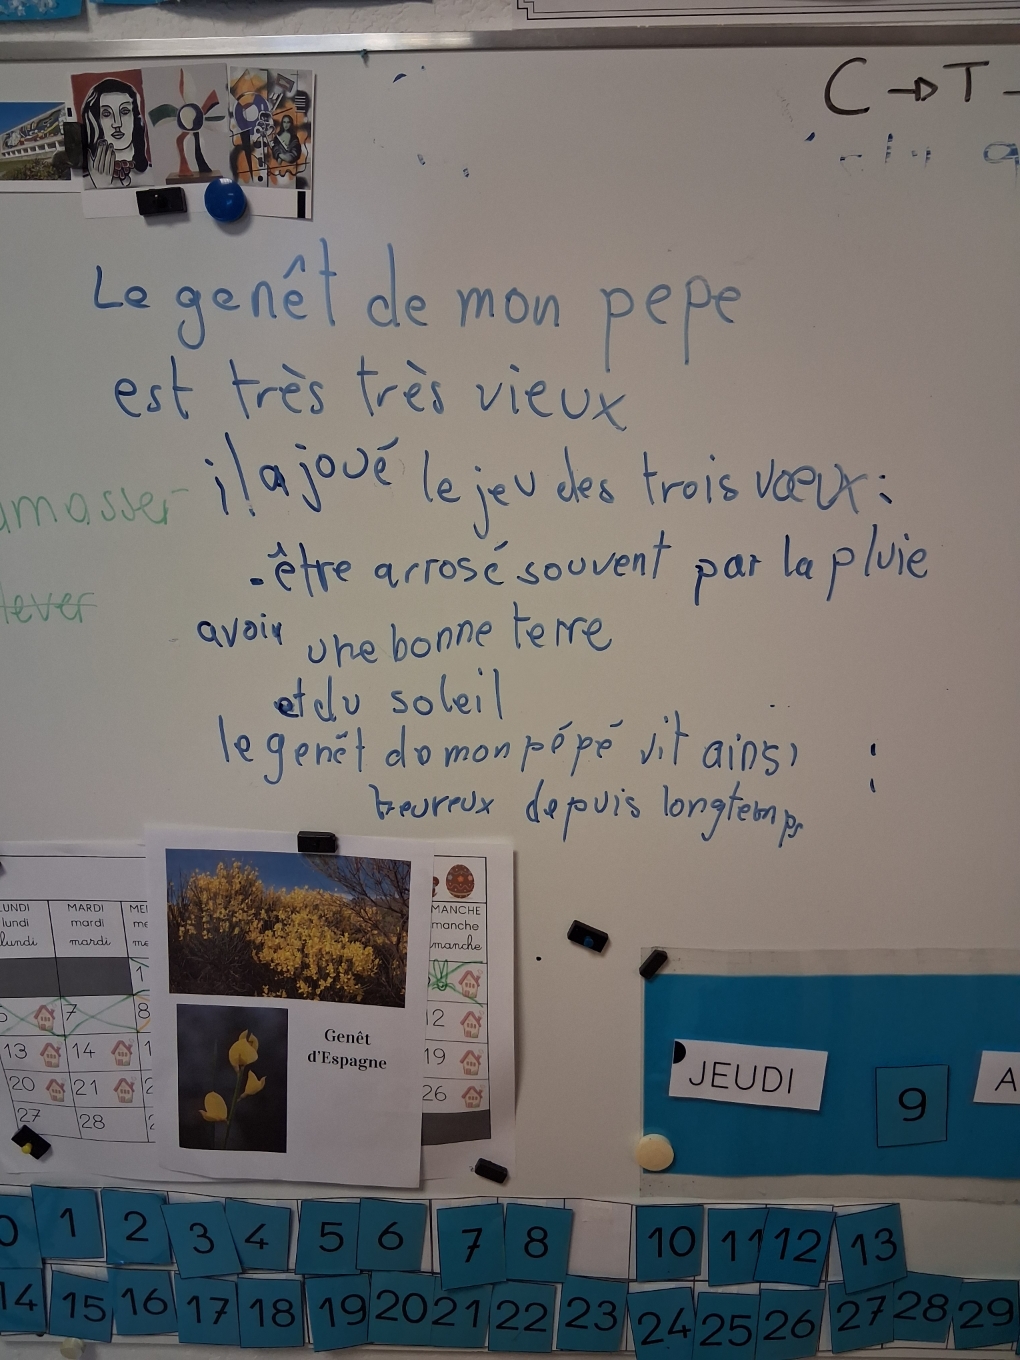 C → T
Le genêt de mon pepe
est très très vieux
il a joué le jeu des trois vœux :
- être arrosé souvent par la pluie
avoir une bonne terre
et du soleil
le genêt de mon pépé vit ainsi
heureux depuis longtemps
amasser
lever
LUNDI MARDI ME MANCHE
lundi mardi me manche
lundi mardi me manche
1
7 8 12
13 14 1 19
20 21 2 26
27 28 2
Genêt
d'Espagne
JEUDI 9 A
0 1 2 3 4 5 6 7 8 10 11 12 13
14 15 16 17 18 19 20 21 22 23 24 25 26 27 28 29